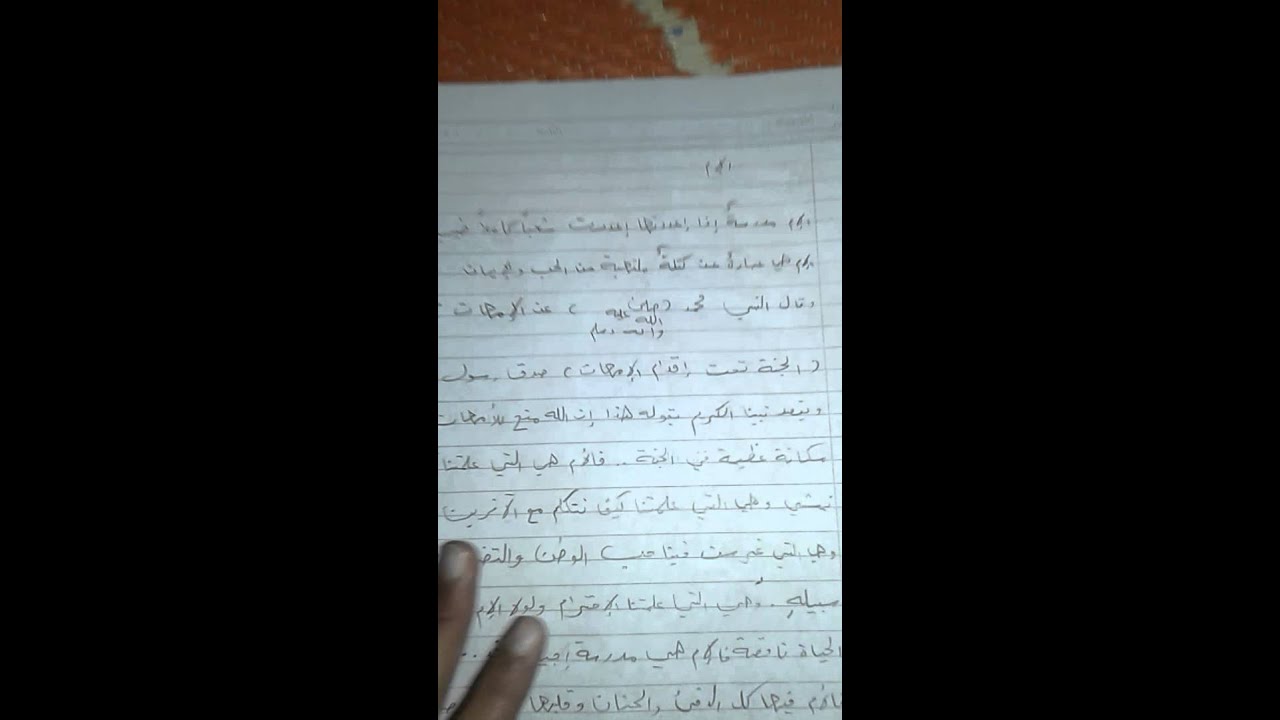 الام
الام مدرسةٌ إذا إعددتها إعددت شعباً
الام هي عبارة عن كتلةٌ ملتهبة من الحب والإيمان
وقال النبي محمد (صلى الله عليه وآله وسلم) عن الإمهات
(الجنة تحت إقدام الإمهات) صدق رسول
ويقصد نبينا الكريم بقوله هذا إن الله منح للأمهات
مكانة عظيمة في الجنة .. فالأم هي التي علمتنا
نمشي وهي التي علمتنا كيف نتكلم مع الآخرين
وهي التي غرست فينا حب الوطن
سبيله .. وهي التي علمتنا الإحترام ولولا الإم
الحياة ناقصة فالإم هي مدرسة
فالأم فيها كل الدفئ والحنان وقلبها